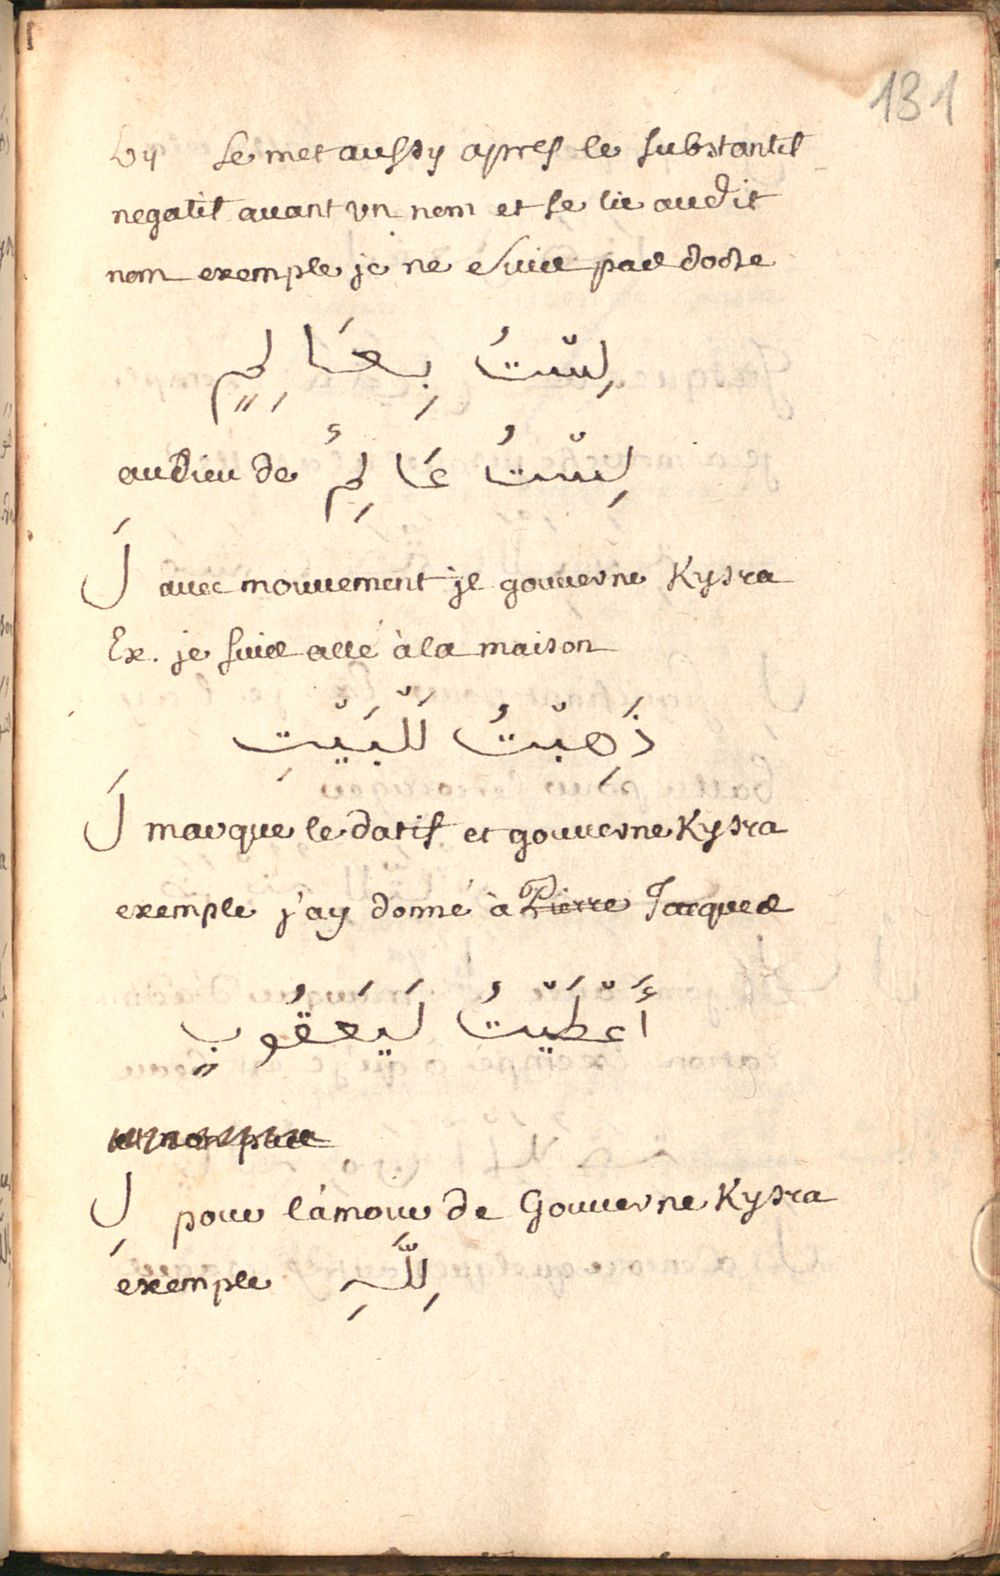 131
by se met aussy apres le substantif
negatif auant vn nom et se lie audit
nom exemple je ne suis pas docte
لِسْتُ بِعَالِمٍ
audieu de لِسْتُ عَالِمٌ
لَ auec mouuement je gouuerne Kysra
Ex. je suis allé à la maison
ذَهِبْتُ لَلْبَيْتِ
لَ marque le datif et gouuerne Kysra
exemple j'ay donné à Pierre Jacques
أَعْطَيْتُ لَيَعَقُوبٍ
لِ pour l'amour de Gouuerne Kysra
exemple لِلَّهِ